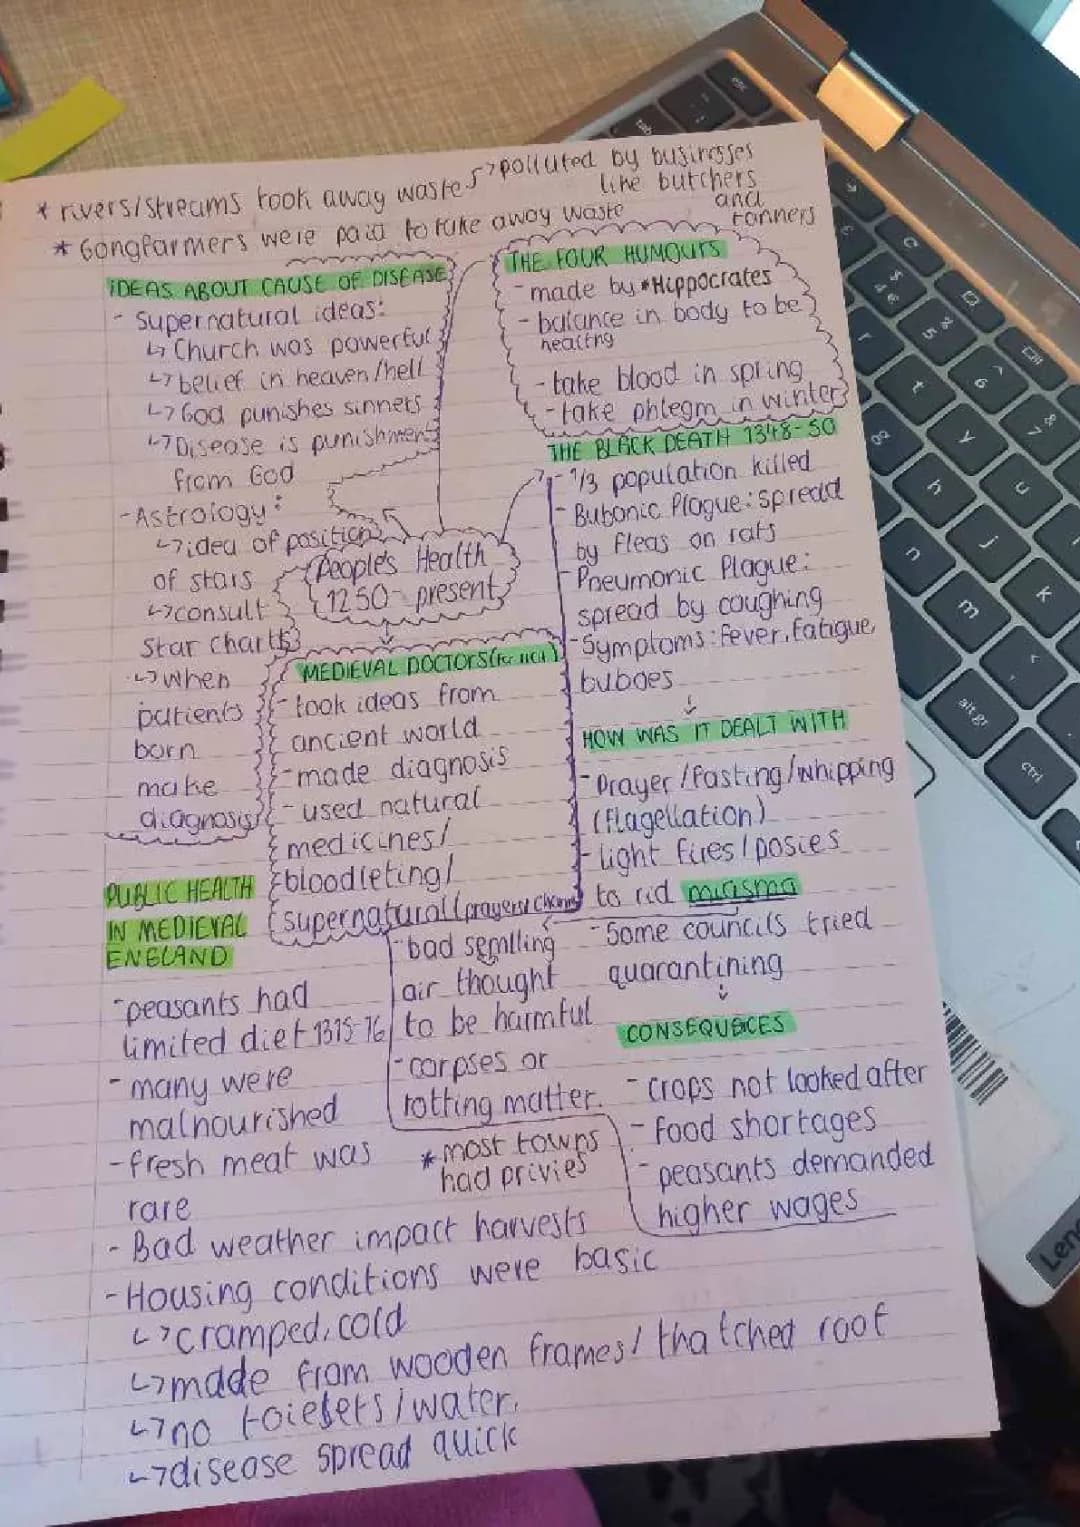 * rivers/streams took away waste
↳ polluted by businesses
like butchers
and
tanners
* Gongfarmers were paid to take away waste
IDEAS ABOUT CAUSE OF DISEASE
- Supernatural ideas:
↳ Church was powerful
↳ belief in heaven/hell
↳ God punishes sinners
↳ Disease is punishment
from God
- Astrology:
↳ idea of position
of stars
↳ consult
star charts
↳ when
patients
born
make
diagnosis
THE FOUR HUMOURS
- made by *Hippocrates
- balance in body to be
healthy
- take blood in spring
- take phlegm in winter
People's Health
1250 - present
THE BLACK DEATH 1348-50
- 1/3 population killed
- Bubonic Plague: spread
by fleas on rats
- Pneumonic Plague:
spread by coughing
- Symptoms: fever, fatigue,
buboes
MEDIEVAL DOCTORS
- took ideas from
ancient world
- made diagnosis
- used natural
medicines/
bloodletting/
supernatural (prayers/charms)
HOW WAS IT DEALT WITH
- Prayer/fasting/whipping
(flagellation)
- light fires/posies
to rid miasma
- Some councils tried
quarantining
- bad semlling
air thought
to be harmful
- corpses or
rotting matter.
CONSEQUECES
- crops not looked after
- food shortages
- peasants demanded
higher wages
PUBLIC HEALTH
IN MEDIEVAL
ENGLAND
- peasants had
limited diet 1315-16
- many were
malnourished
- fresh meat was
rare
* most towns
had privies
- Bad weather impact harvests
- Housing conditions were basic
↳ cramped, cold
↳ made from wooden frames/thatched roof
↳ no toielets/water.
↳ disease spread quick
esc
tab
alt gr
ctrl
r
t
y
u
h
j
k
n
m
Len